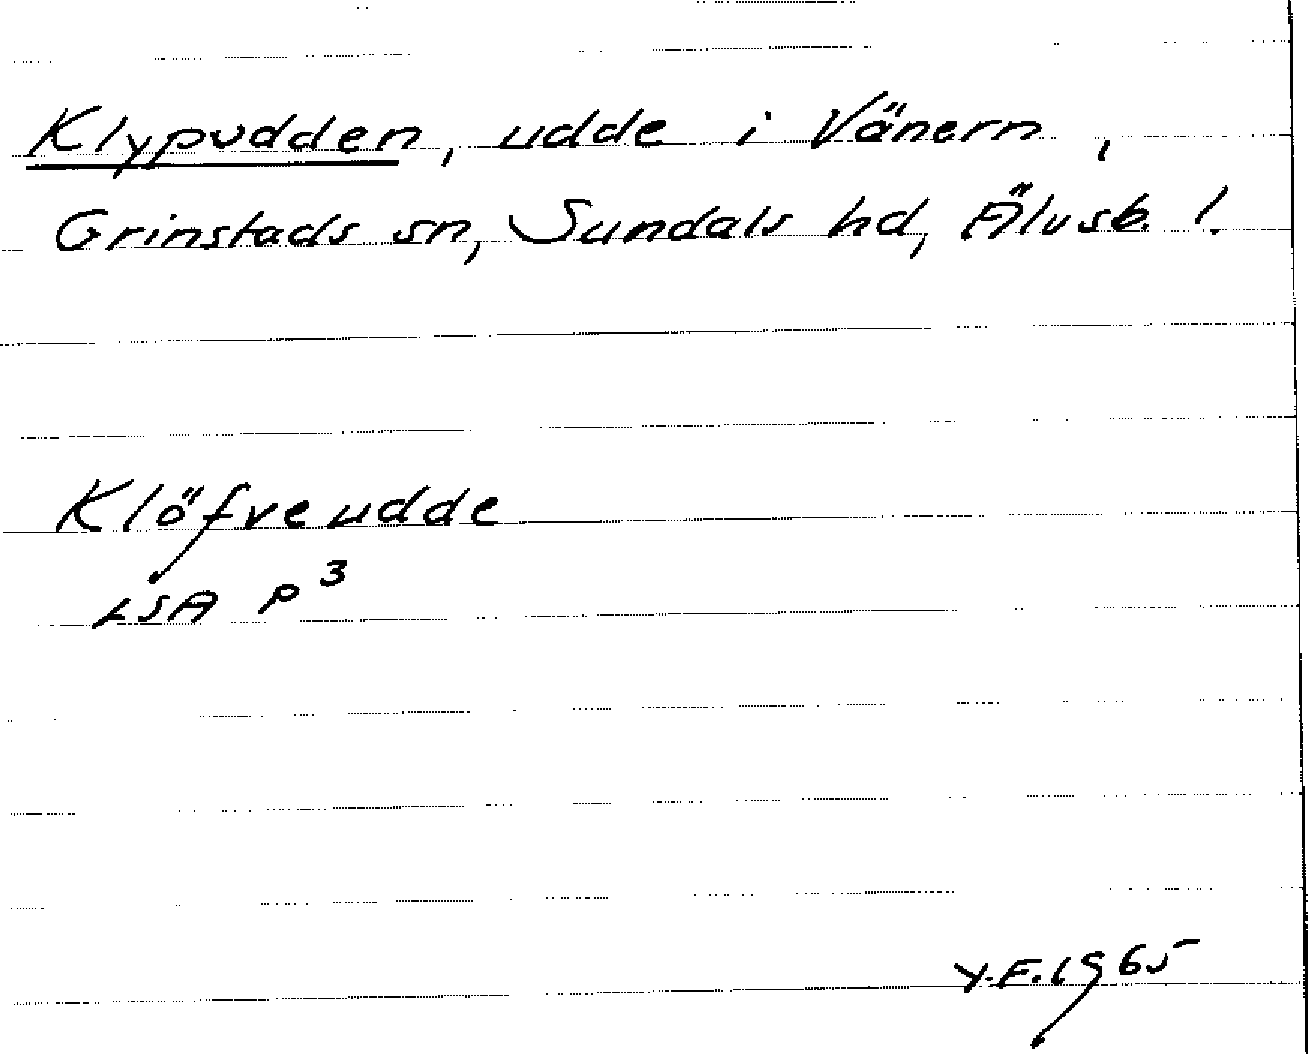 Klypudden, udde i Vänern,
Grinstads sn, Sundals hd, Älvsb. l.
Klöfveudde
LSA P 3
Y.F. 1965